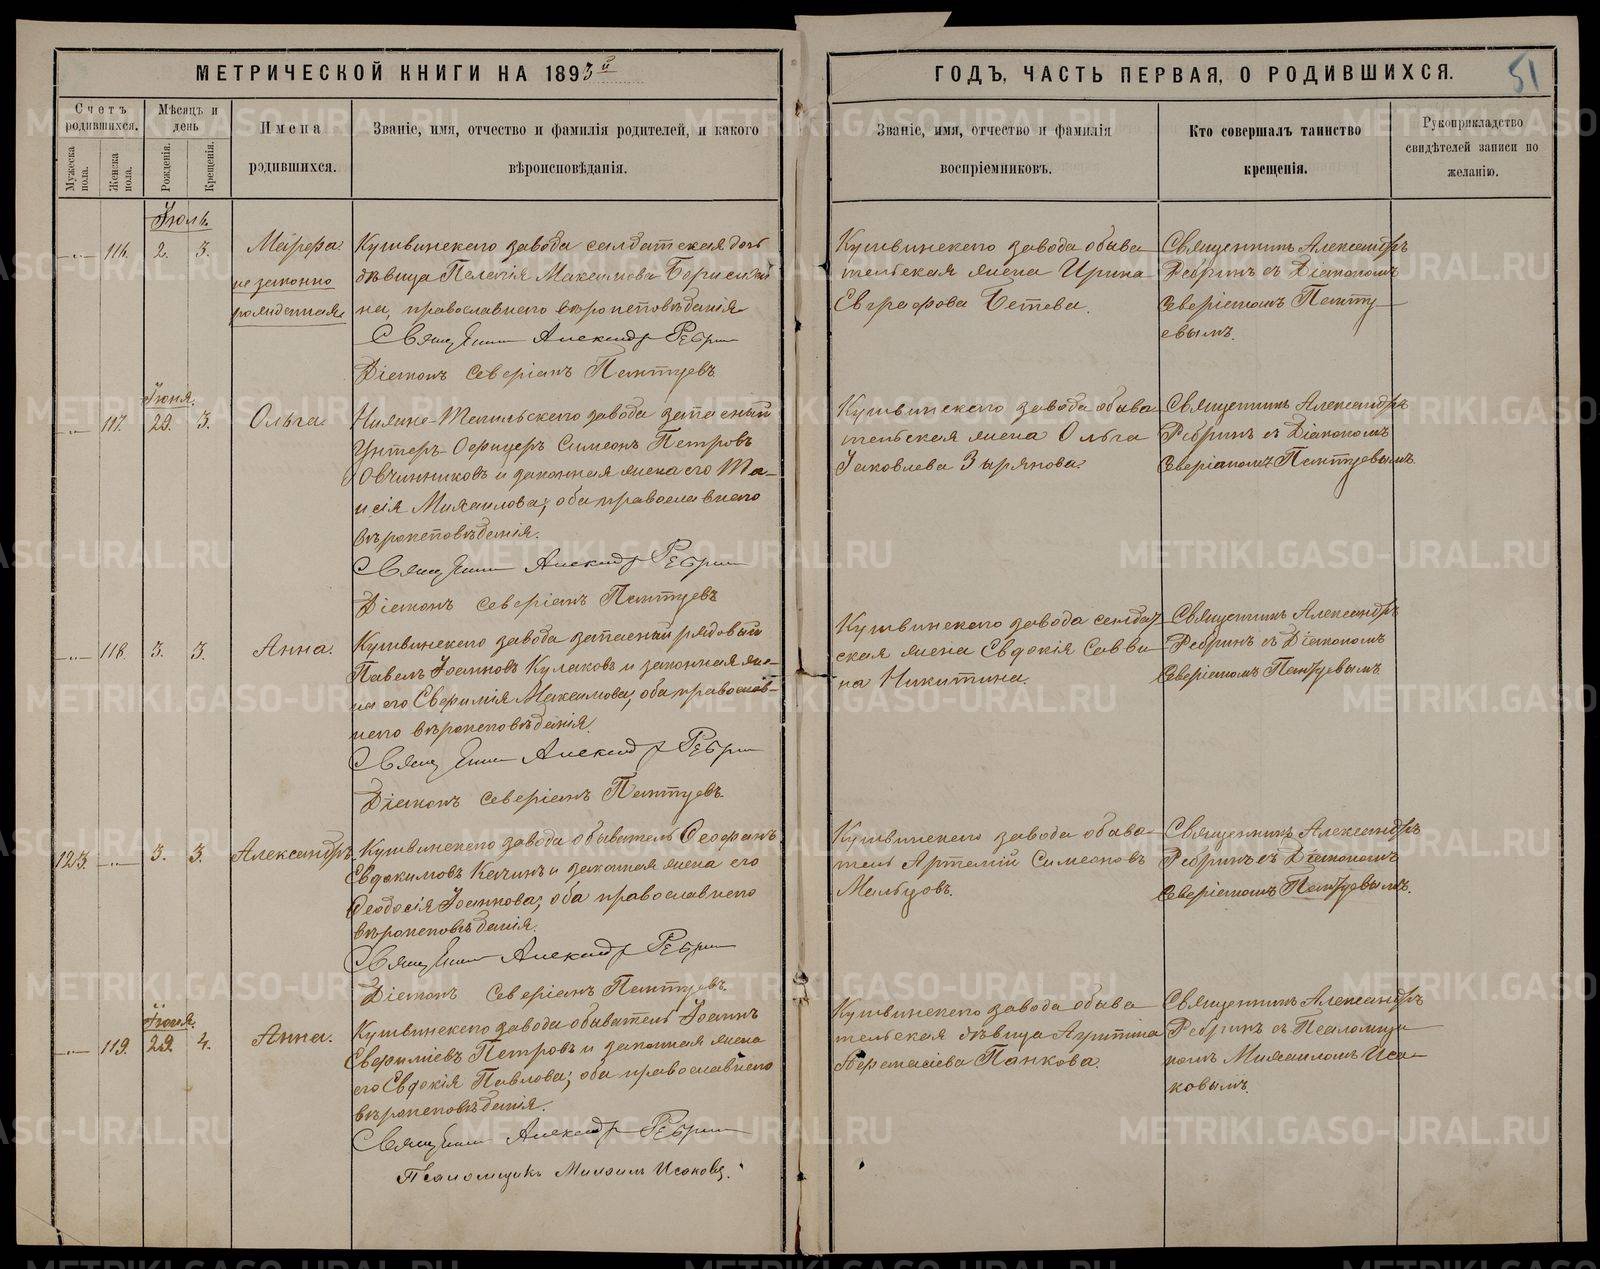 МЕТРИЧЕСКОЙ КНИГИ НА 1893й
Счетъ родившихся.
Мужеска пола.
Женска пола.
Мѣсяцъ и день
Рожденія.
Крещенія.
Имена
родившихся.
Званіе, имя, отчество и фамилія родителей, и какого
вѣроисповѣданія.
Іюль.
116. 2. 3.
Марѳа
незаконно
рожденная
Кушвинскаго завода солдатская дочь
дѣвица Пелагія Максимова
на, православнаго вѣроисповѣданія
Священникъ Александръ Ребринъ
Діаконъ Северіанъ Пантуевъ
Іюня.
117. 29. 3.
Ольга
Нижне-Тагильскаго завода запасный
Унтеръ-Офицеръ Симеонъ Петровъ
Овчинниковъ и законная жена его Та-
исія Михаилова; оба православнаго
вѣроисповѣданія.
Священникъ Александръ Ребринъ
Діаконъ Северіанъ Пантуевъ
118. 3. 3.
Анна.
Кушвинскаго завода запасный рядовый
Павелъ Іоанновъ Кулаковъ и законная же-
на его Евфимія Максимова; оба православ-
наго вѣроисповѣданія.
Священникъ Александръ Ребринъ
Діаконъ Северіанъ Пантуевъ.
123. 3. 3.
Александръ.
Кушвинскаго завода обыватель Ѳеофанъ
Евдокимовъ Качинъ и законная жена его
Ѳеодосія Іоаннова; оба православнаго
вѣроисповѣданія.
Священникъ Александръ Ребринъ
Діаконъ Северіанъ Пантуевъ.
Іюня.
119. 29. 4.
Анна.
Кушвинскаго завода обыватель Іоаннъ
Евфиміевъ Петровъ и законная жена
его Евдокія Павлова; оба православнаго
вѣроисповѣданія.
Священникъ Александръ Ребринъ
Псаломщикъ Михаилъ Исаковъ.
ГОДЪ, ЧАСТЬ ПЕРВАЯ, О РОДИВШИХСЯ.
51
Званіе, имя, отчество и фамилія
воспріемниковъ.
Кто совершалъ таинство
крещенія.
Рукоприкладство
свидѣтелей записи по
желанію.
Кушвинскаго завода обыва
тельская жена Ирина
Евграфова Бетева.
Священникъ Александръ
Ребринъ съ Діакономъ
Северіаномъ Панту
евымъ.
Кушвинскаго завода обыва
тельская жена Ольга
Іаковлева Зырянова.
Священникъ Александръ
Ребринъ съ Діакономъ
Северіаномъ Пантуевымъ.
Кушвинскаго завода солдат
ская жена Евдокія Савви
на Никитина.
Священникъ Александръ
Ребринъ съ Діакономъ
Северіаномъ Пантуевымъ
Кушвинскаго завода обыва
тель Артемій Симеоновъ
Мальцовъ.
Священникъ Александръ
Ребринъ съ Діакономъ
Северіаномъ Пантуевымъ.
Кушвинскаго завода обыва
тельская дѣвица
Панкова.
Священникъ Александръ
Ребринъ съ Псаломщи
комъ Михаиломъ Иса-
ковымъ.
METRIKI.GASO-URAL.RU